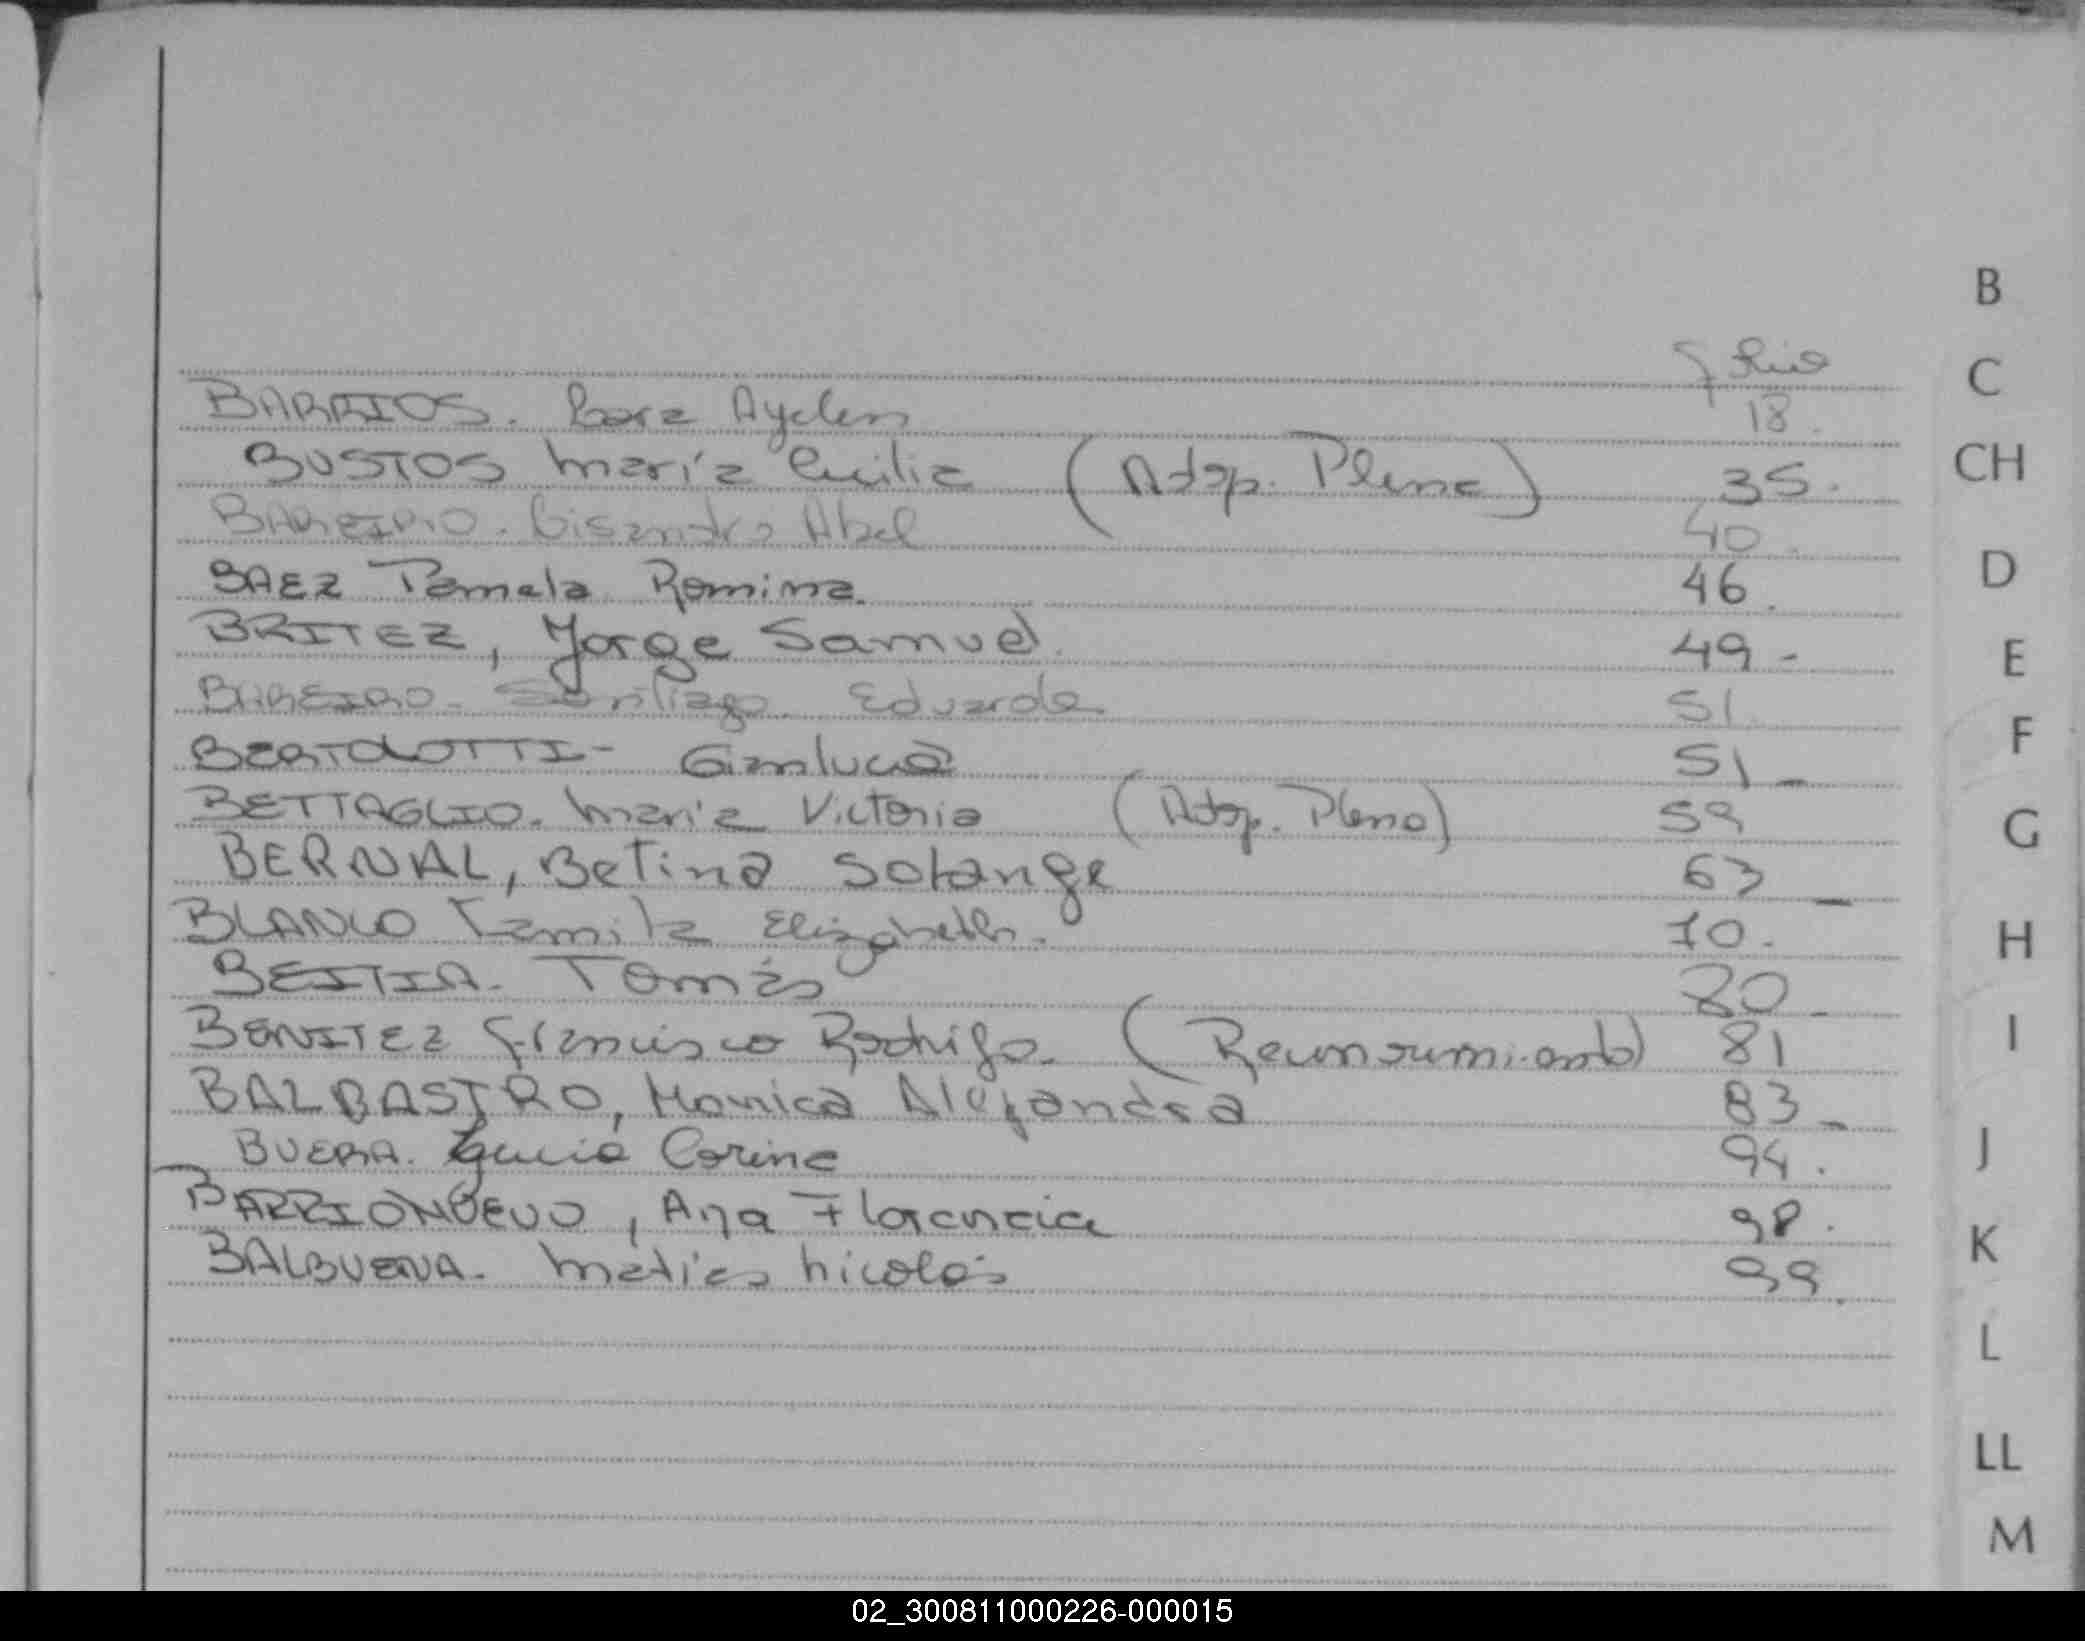 B
folio
C
BARRIOS. Lara Aylen 18.
BUSTOS María Cecilia (Adop. Plena) 35.
CH
BAREIRO. Lisandro Abel 40.
BAEZ Pamela Romina. 46.
D
BRITEZ, Jorge Samuel. 49-
E
BAREIRO. Santiago Eduardo 51.
F
BERTOLOTTI- Gianluca 51_
BETTAGLIO. María Victoria (Adop. Plena) 59
G
BERNAL, Betina Solange 63_
BLANCO Tamila Elizabeth. 70.
H
BEITIA. Tomás 80_
BENITEZ Francisco Rodrigo. (Reconocimiento) 81
I
BALBASTRO, Monica Alejandra 83_
BUERA. Lucía Corina 94.
J
BARRIONUEVO, Ana Florencia 98.
K
BALBUENA. Matías Nicolás 99.
L
LL
M
02_300811000226-000015